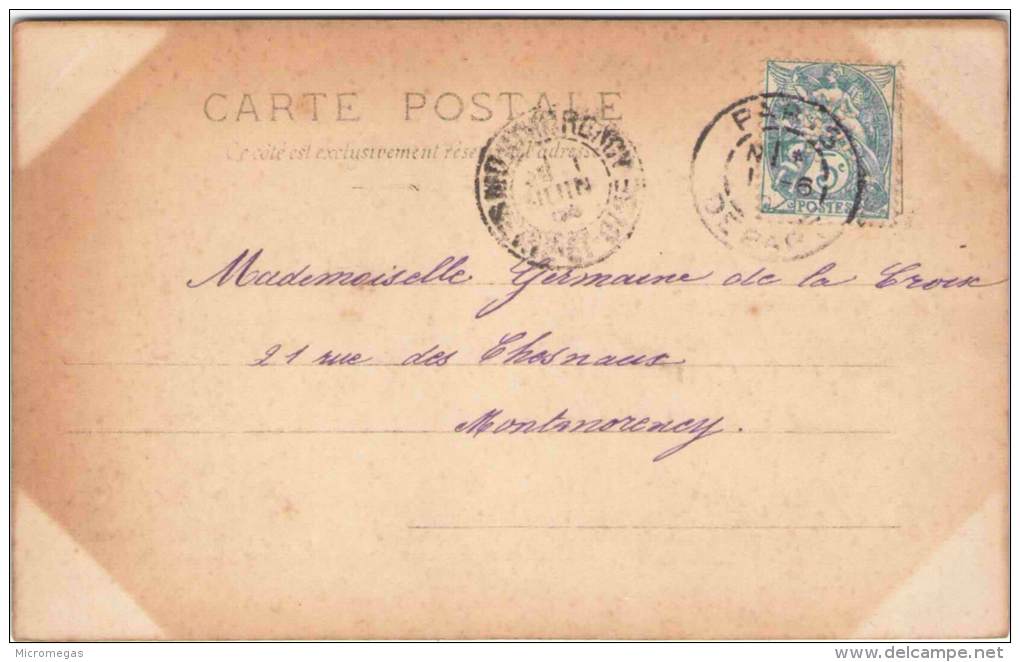 CARTE POSTALE
Ce côté est exclusivement réservé à l'adresse
MONTMORENCY
JUIN
SEINE-ET-OISE
PARIS
DEPART
5c
POSTES
Mademoiselle Germaine de la Croix
21 rue des Chesnaux
Montmorency.
Micromegas
www.delcampe.net